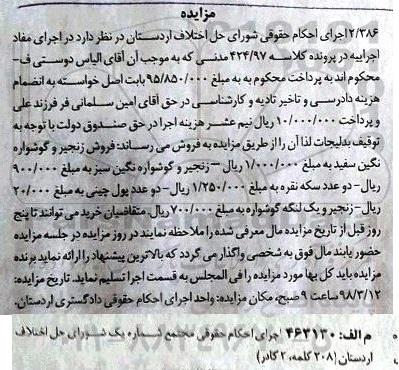 مزایده
۲/۳۸۶ اجرای احکام حقوقی شورای حل اختلاف اردستان در نظر دارد در اجرای مفاد
اجراییه در پرونده کلاسه ۴۲۴/۹۷ مدنی که به موجب آن آقای الیاس دوستی ف-
محکوم اند به پرداخت محکوم به به مبلغ ۹۵/۸۵۰/۰۰۰ بابت اصل خواسته به انضمام
هزینه دادرسی و تاخیر تادیه و کارشناسی در حق آقای امین سلمانی فر فرزند علی
و پرداخت ۱۰/۰۰۰/۰۰۰ ریال نیم عشر هزینه اجرا در حق صندوق دولت با توجه به
توقیف بدلیجات لذا آن را از طریق مزایده به فروش می رساند: فروش زنجیر و گوشواره
نگین سفید به مبلغ ۱/۰۰۰/۰۰۰ ریال – زنجیر و گوشواره نگین سبز به مبلغ ۹۰۰/۰۰۰
ریال- دو عدد سکه نقره به مبلغ ۱/۲۵۰/۰۰۰ ریال- دو عدد پول چینی به مبلغ ۲۰/۰۰۰
ریال- زنجیر و یک لنگه گوشواره به مبلغ ۷۰۰/۰۰۰ ریال. متقاضیان خرید می توانند تا پنج
روز قبل از تاریخ مزایده مال معرفی شده را ملاحظه نمایند در روز مزایده در جلسه مزایده
حضور یابند مال فوق به شخصی واگذار می گردد که بالاترین پیشنهاد را ارائه نماید برنده
مزایده باید کل بها مورد مزایده را فی المجلس به قسمت اجرا تسلیم نماید. تاریخ مزایده:
۹۸/۳/۱۲ ساعت ۹ صبح، مکان مزایده: واحد اجرای احکام حقوقی دادگستری اردستان.
م الف: ۴۶۳۱۳۰ اجرای احکام حقوقی مجتمع شماره یک شورای حل اختلاف
اردستان (۲۰۸ کلمه، ۲ کادر)